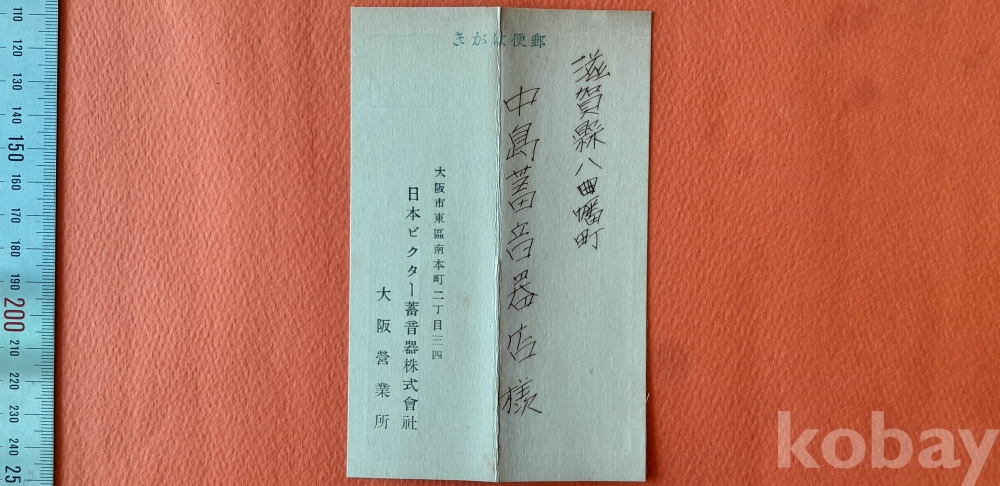 郵便はがき
滋賀縣八幡町
中島蓄音器店様
大阪市東區南本町二丁目三四
日本ビクター蓄音器株式會社
大阪營業所
110
120
130
140
150
160
170
180
190
200
210
220
230
240
25
kobay